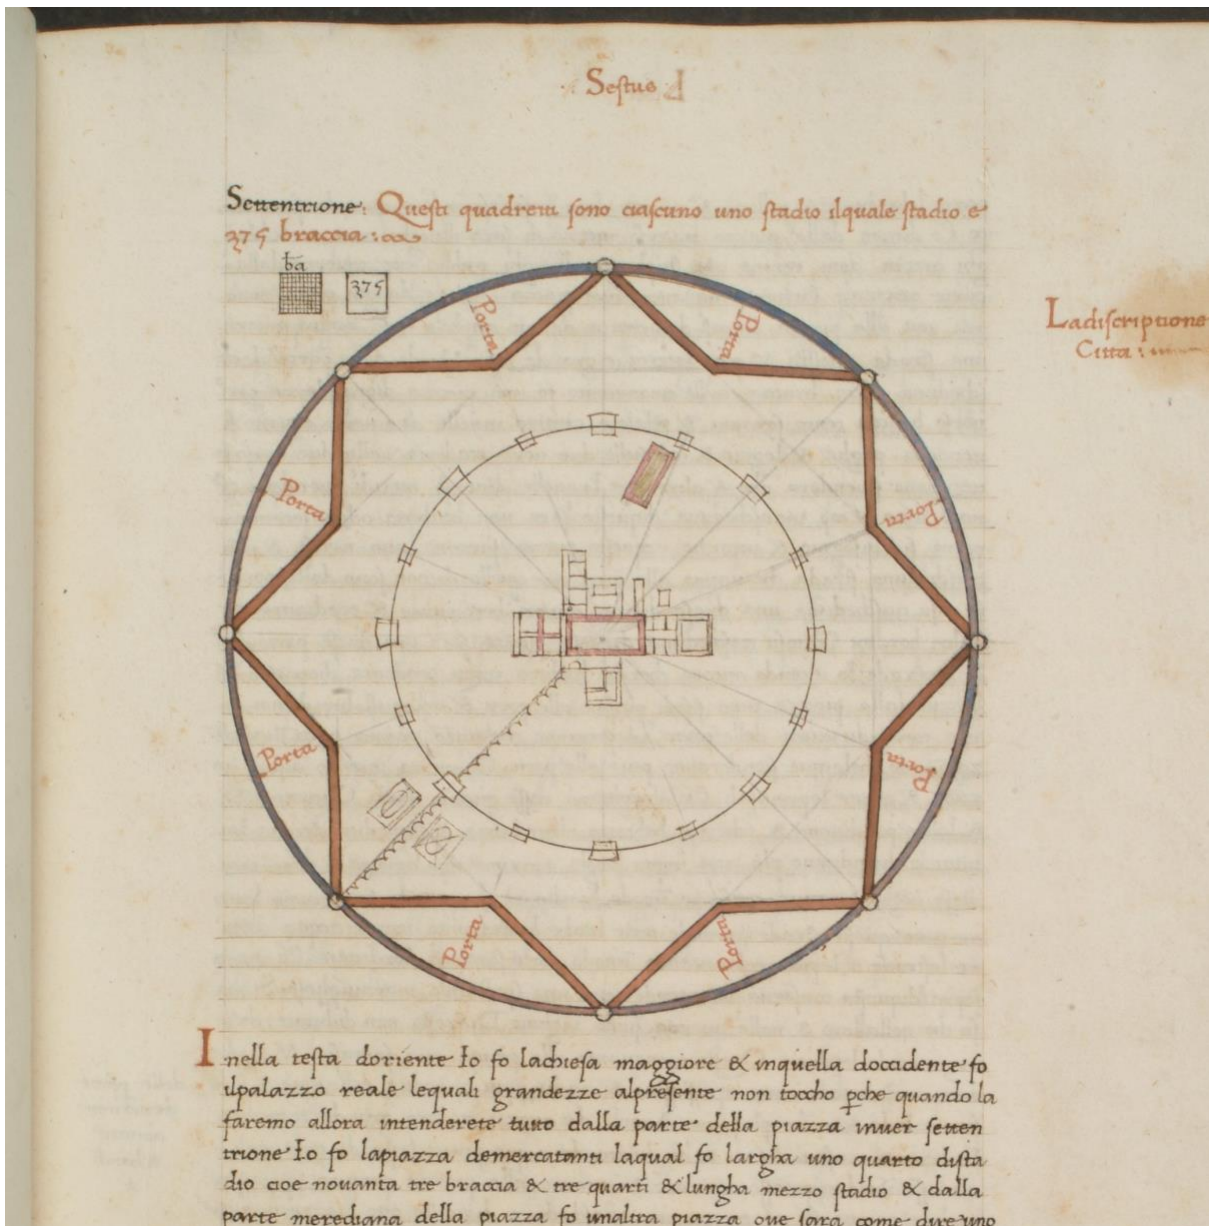 Sestus
Settentrione: Questi quadretti sono ciascuno uno stadio ilquale stadio e
375 braccia:
ba
375
Porta
Porta
Ladiscriptione
Citta:
Porta
Porta
Porta
Porta
Porta
Porta
Inella testa doriente Io fo lachiesa maggiore & inquella doccidente fo
ilpalazzo reale lequali grandezze alpresente non toccho pche quando la
faremo allora intenderete tutto dalla parte della piazza inver setten
trione Io fo lapiazza demercatanti laqual fo largha uno quarto dista
dio cioe novanta tre braccia & tre quarti & lungha mezzo stadio & dalla
parte merediana della piazza fo unaltra piazza ove sara come dire uno